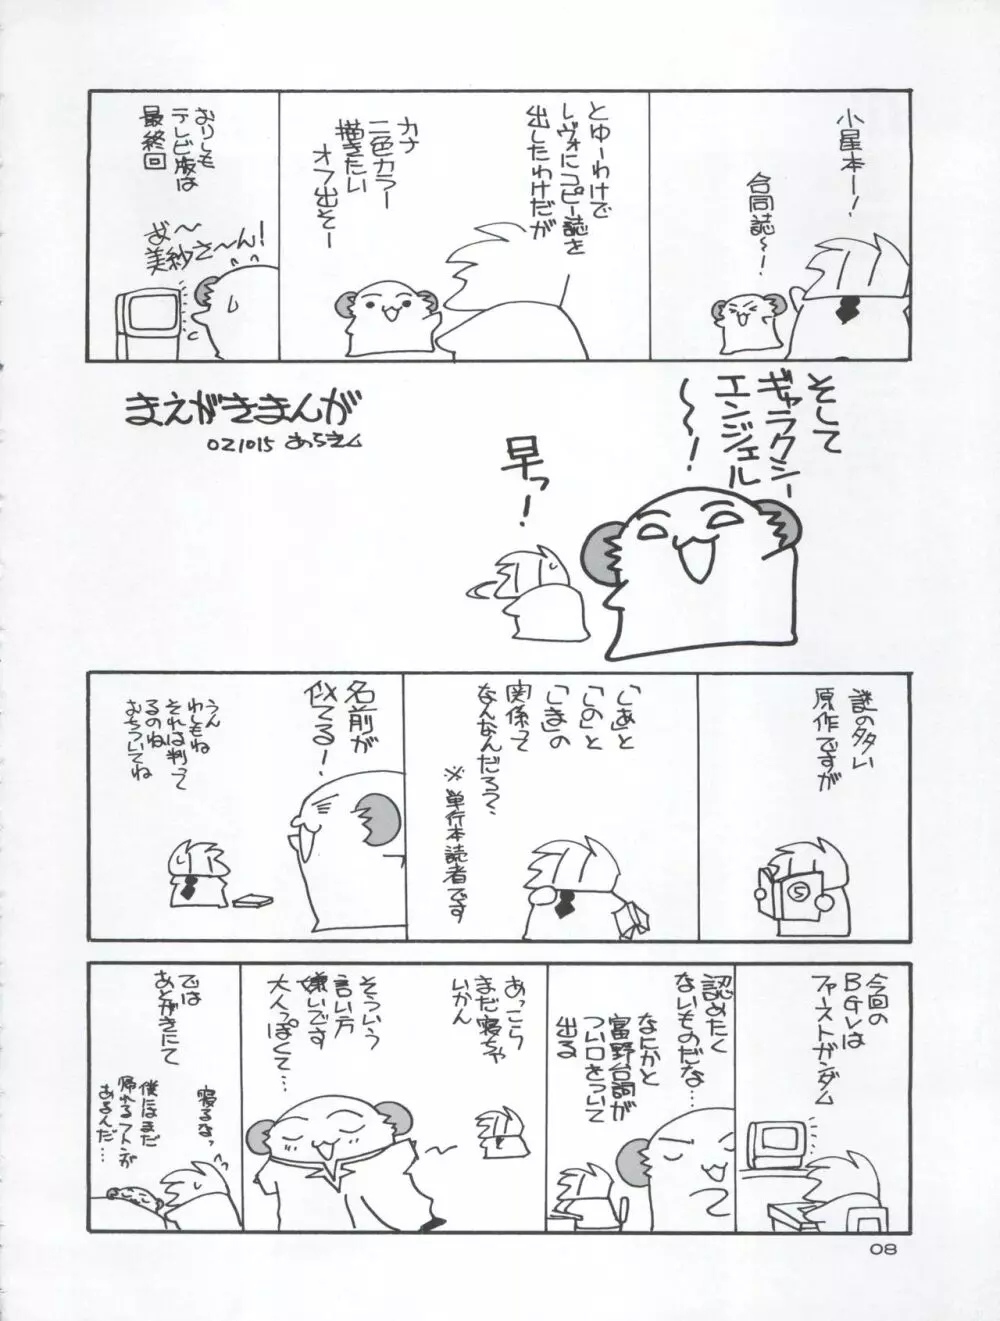 小星本ー！
合同誌〜ー！
とゆーわけで
レヴォにコピー誌を
出したわけだが
カナ
二色カラー
描きたい
オフ出そー
おりしも
テレビ版は
最終回
美紗さ〜ん！
そして
ギャラクシー
エンジェル
〜〜！
早っ！
まえがきまんが
021015
謎の多い
原作ですが
5
「あ」と
「の」と
「ま」の
関係って
なんなんだろ？
※単行本読者です
名前が
似てる！
うん
わしもね
それは判って
るのね
おちついてね
今回の
BGVは
ファーストガンダム
認めたく
ないものだな…
なにかと
富野台詞が
つい口をついて
出る
あっこら
まだ寝ちゃ
いかん
そういう
言い方
嫌いです
大人っぽくて…
では
あとがきにて
寝るなっ
僕にはまだ
帰れるフトンが
あるんだ…
08